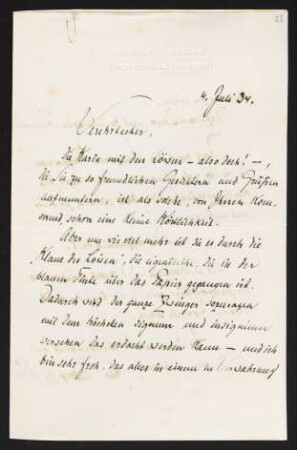 25
4. Juli 34.
Verehrtester,
die Karte mit dem Löwen – also doch! –,
die Sie zu so freundlichen Gesichtern und Grüßen
aufmuntern, ist als solche, von Ihrem Kom-
schon eine kleine Köstlichkeit.
Aber um wie viel mehr ist sie es durch die
"Klaue des Löwen", die eigentliche, die in der
blauen Tinte über das Papier gegangen ist.
Dadurch wird der ganze sozusagen
mit dem höchsten signum und insignium
versehen das erdacht werden kann – und ich
bin sehr froh, das alles in einem in Verwahrung